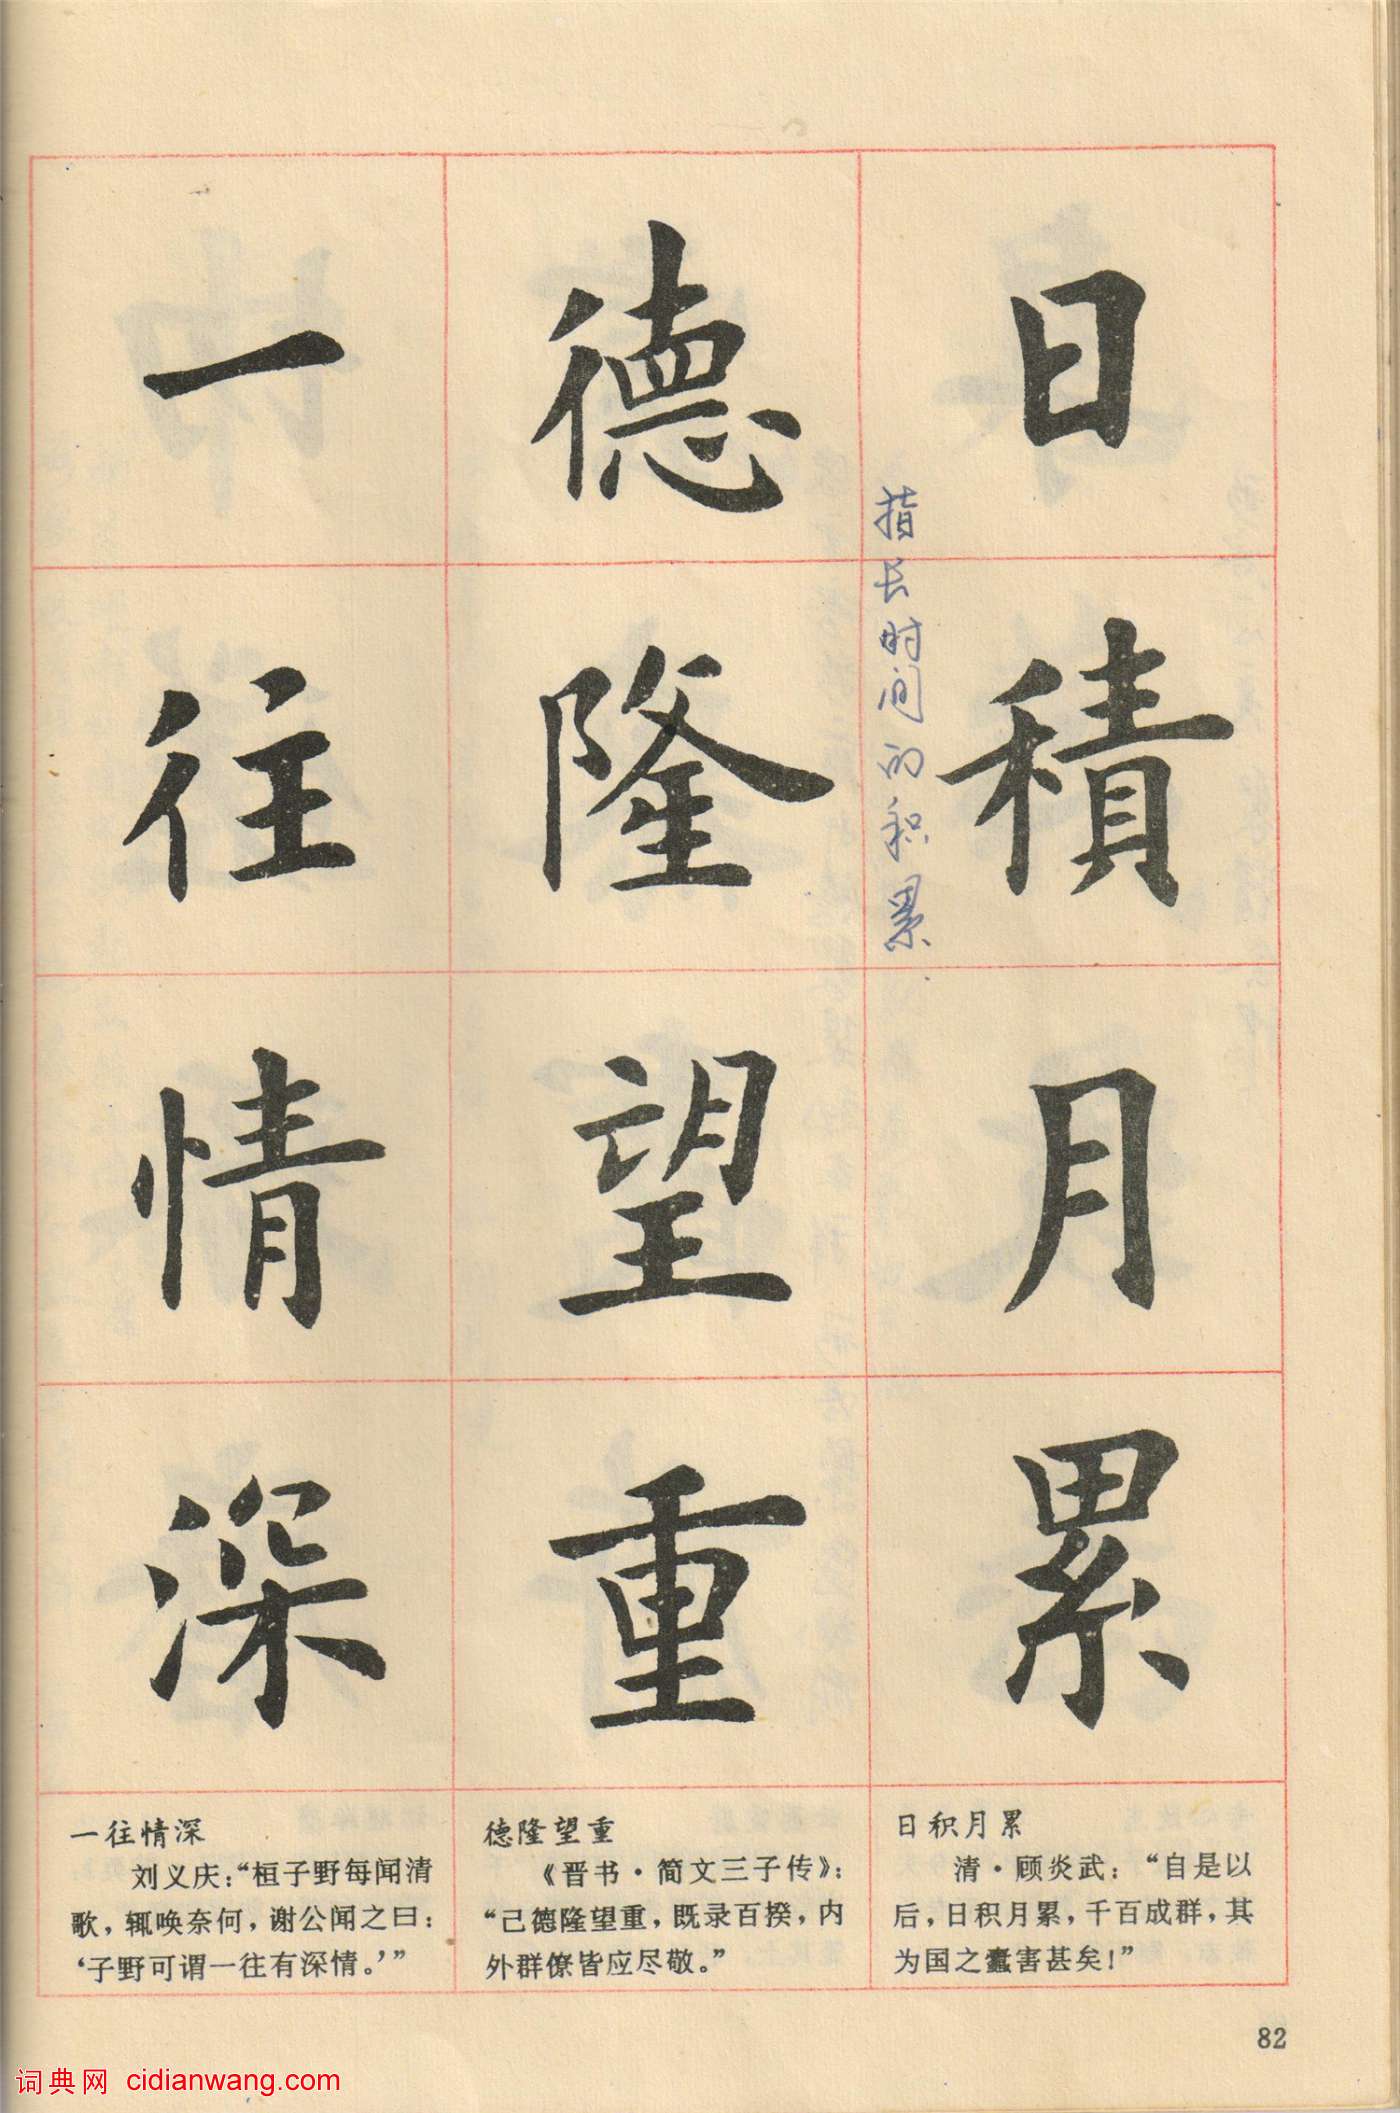 日積月累
指长时间的积累
德隆望重
一往情深
日积月累
清·顾炎武：“自是以
后，日积月累，千百成群，其
为国之蠹害甚矣！”
德隆望重
《晋书·简文三子传》：
“己德隆望重，既录百揆，内
外群僚皆应尽敬。”
一往情深
刘义庆：“桓子野每闻清
歌，辄唤奈何，谢公闻之曰：
‘子野可谓一往有深情。’”
82
词典网 cidianwang.com